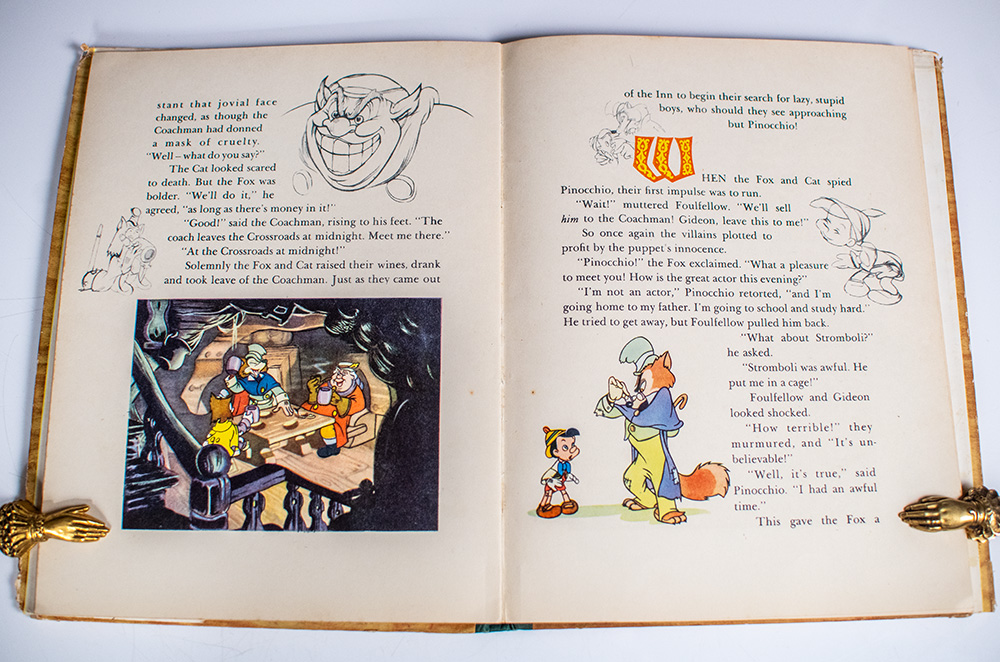 stant that jovial face
changed, as though the
Coachman had donned
a mask of cruelty.
"Well – what do you say?"
The Cat looked scared
to death. But the Fox was
bolder. "We'll do it," he
agreed, "as long as there's money in it!"
"Good!" said the Coachman, rising to his feet. "The
coach leaves the Crossroads at midnight. Meet me there."
"At the Crossroads at midnight!"
Solemnly the Fox and Cat raised their wines, drank
and took leave of the Coachman. Just as they came out
of the Inn to begin their search for lazy, stupid
boys, who should they see approaching
but Pinocchio!
WHEN the Fox and Cat spied
Pinocchio, their first impulse was to run.
"Wait!" muttered Foulfellow. "We'll sell
him to the Coachman! Gideon, leave this to me!"
So once again the villains plotted to
profit by the puppet's innocence.
"Pinocchio!" the Fox exclaimed. "What a pleasure
to meet you! How is the great actor this evening?"
"I'm not an actor," Pinocchio retorted, "and I'm
going home to my father. I'm going to school and study hard."
He tried to get away, but Foulfellow pulled him back.
"What about Stromboli?"
he asked.
"Stromboli was awful. He
put me in a cage!"
Foulfellow and Gideon
looked shocked.
"How terrible!" they
murmured, and "It's un-
believable!"
"Well, it's true," said
Pinocchio. "I had an awful
time."
This gave the Fox a